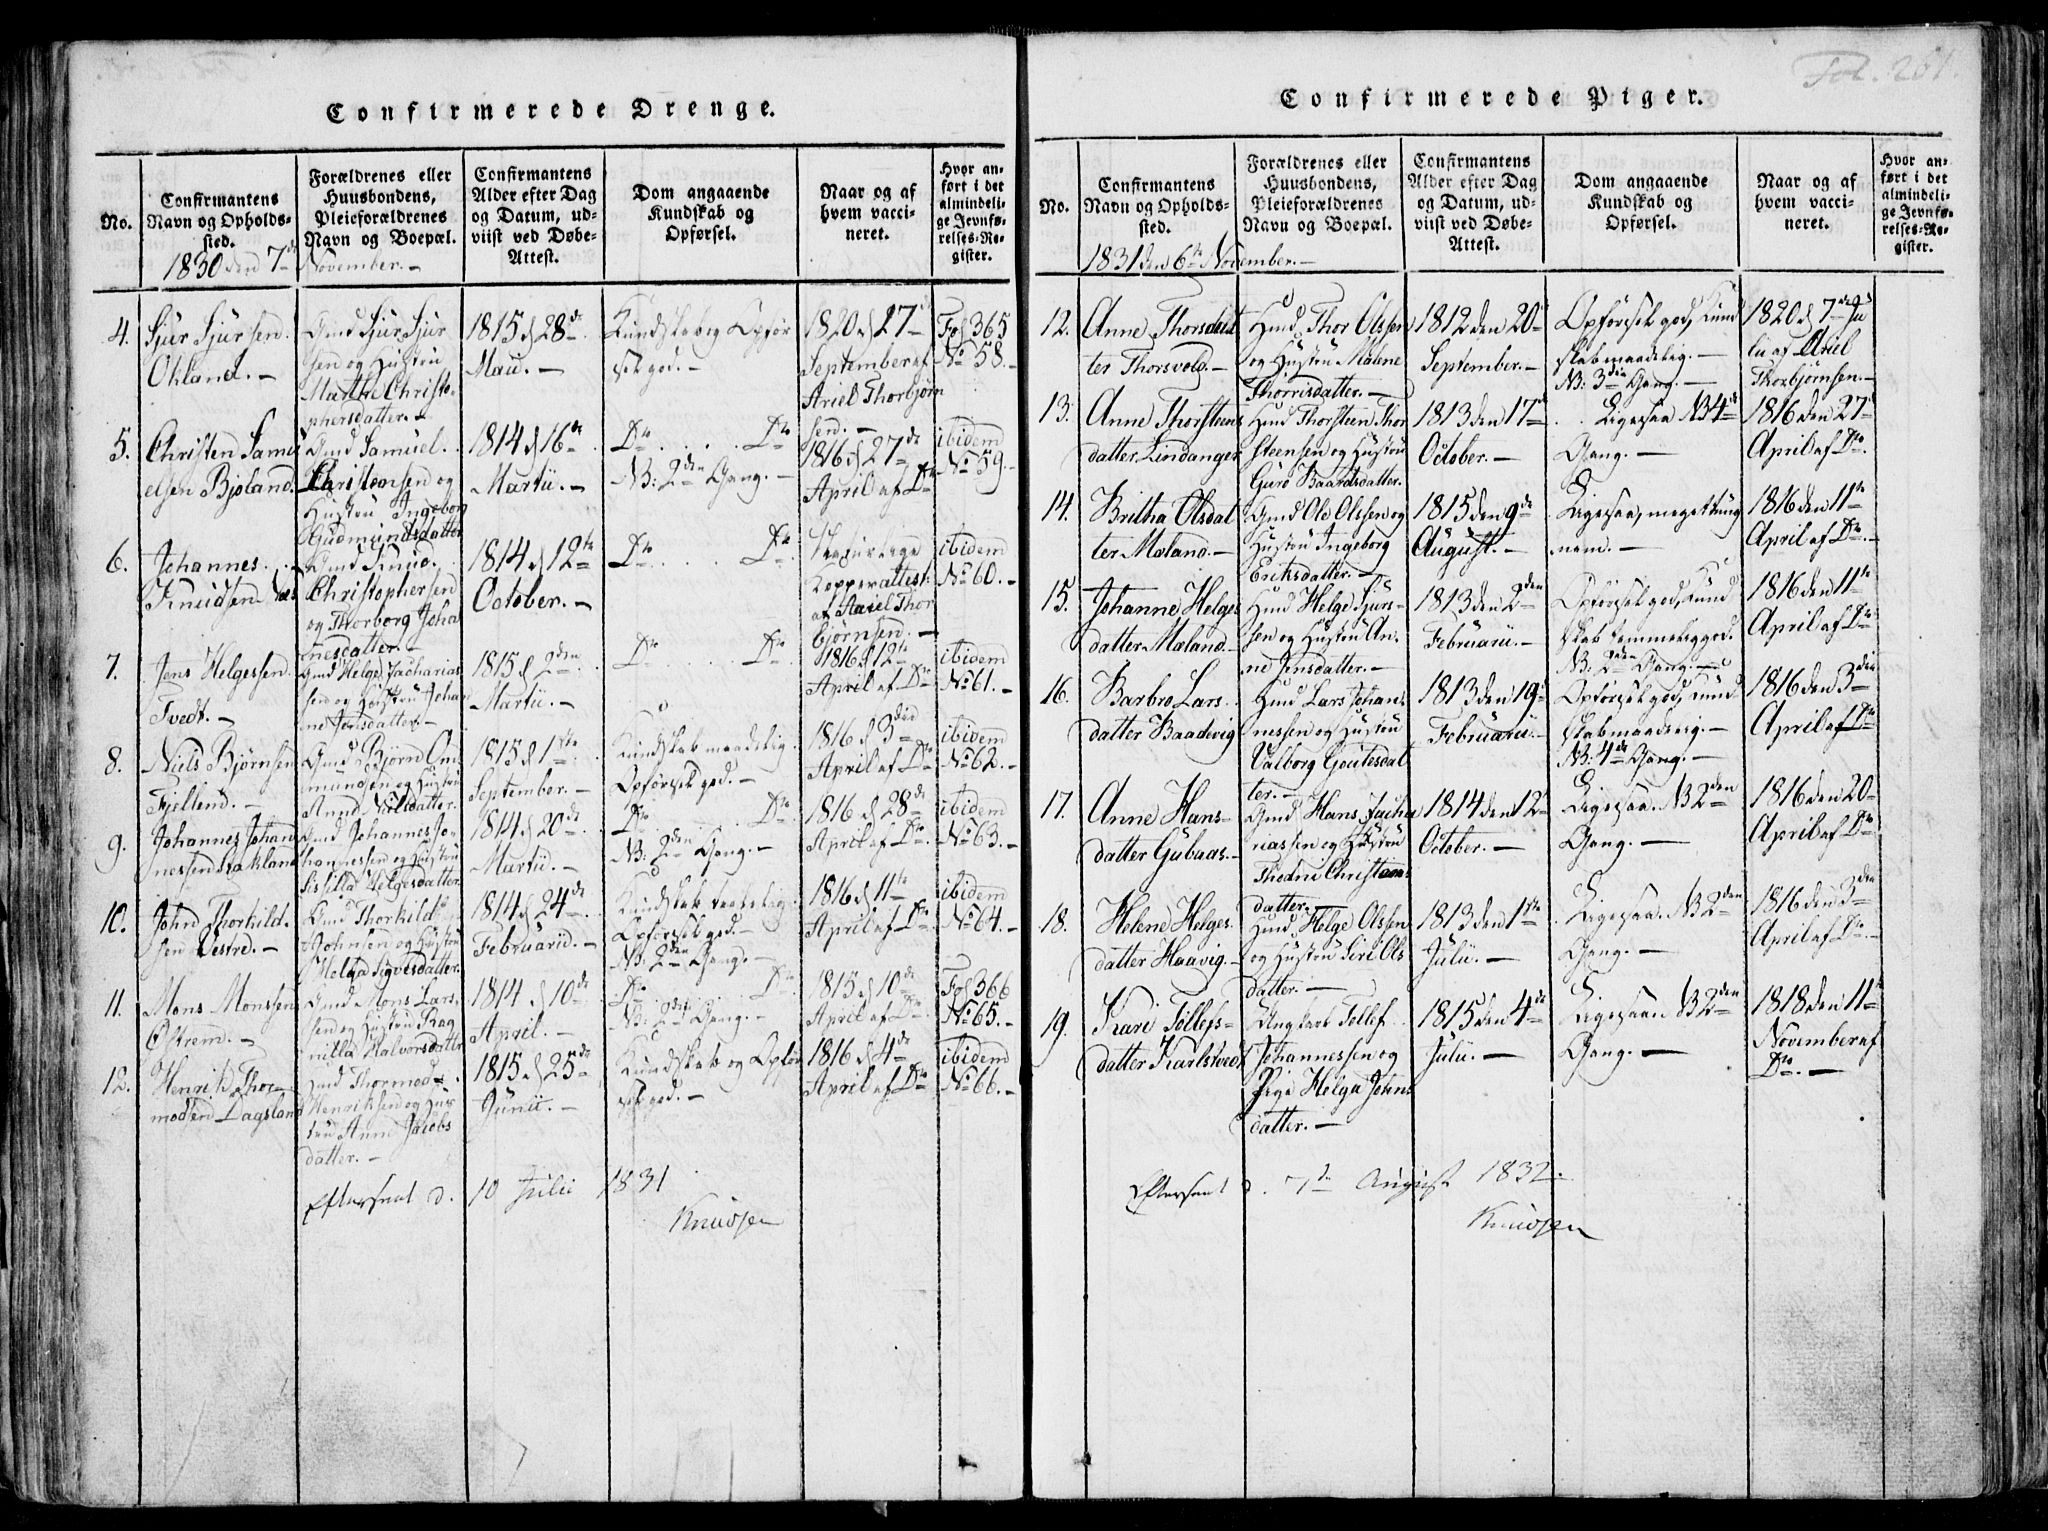 Confirmerede Drenge.
No.
Confirmantens
Navn og Opholds-
sted.
Forældrenes eller
Huusbondens,
Pleieforældrenes
Navn og Boepæl.
Confirmantens
Alder efter Dag
og Datum, ud-
viist ved Døbe-
Attest.
Dom angaaende
Kundskab og
Opførsel.
Naar og af
hvem vacci-
neret.
Hvor an-
ført i det
almindeli-
ge Jevnfø-
relses-Re-
gister.
1830 den 7de November. -
4.
Sjur Sjursen
Okland. -
Gmd Sjur Sjur
sen og Hustru
Marthe Christo-
phersdatter. -
1815 d 28de
Maii. -
Kundskab og Opfør
sel god. -
1820 d 27de
September af
Ariel Thorbjørn
sen. -
Fol 365
No 58. -
5.
Christen Samu
elsen Bjoland.
Gmd Samuel
Christensen og
Hustru Ingeborg
Gudmundsdatter
1814 d 16de
Martii. -
Do . . . . Do
NB: 2den Gang. -
1816 d 27de
April af Do
ibidem
No 59. -
6.
Johannes
Knudsen
Gmd Knud
Christophersen
og Thorborg Joha
nesdatter. -
1814 d 12te
October. -
Do . . . . Do
naturlige
Kopper attest:
af Ariel Thor
bjørnsen. -
ibidem
No 60. -
7.
Jens Helgessen
Tvedt. -
Gmd Helge Zacharias
sen og Hustru Johan
ne Jensdatter. -
1815 d 2den
Martii. -
Do . . . . Do
1816 d 12te
April af Do
ibidem
No 61. -
8.
Niels Bjørnsen
Fjelland. -
Gmd Bjørn Om
mundsen og Hustru
Anna Nilsdatter.
1815 d 1ste
September. -
Kundskab maadelig
Opførsel god. -
1816 d 3die
April af Do
ibidem
No 62. -
9.
Johannes Johan
nessen Stakland
Gmd Johannes Jo-
hannessen og Hustru
Sissilla Helgesdatter
1814 d 20de
Martii. -
Do . . . . Do
NB: 2den Gang. -
1816 d 28de
April af Do
ibidem
No 63. -
10.
John Thorkild-
sen Vestre. -
Gmd Thorkild
Johnsen og Hustru
Helga Sjvesdatter.
1814 d 24de
Februarii. -
Kundskab
Opførsel god. -
NB: 2den Gang. -
1816 d 11te
April af Do
ibidem
No 64. -
11.
Mons Monsen
Østrem. -
Gmd Mons Lars-
sen og Hustru Rag
nilla Halvorsdatter
1814 d 10de
April. -
Do . . . . Do
NB: 2den Gang. -
1815 d 10de
April af Do
Fol 366
No 65. -
12.
Henrik Thor-
modsen Dagsland
Hmd Thormod
Henriksen og Hus
tru Anna Jacobs
datter. -
1815 d 25de
Junii. -
Kundskab og Opfør
sel god. -
1816 d 4de
April af Do
ibidem
No 66. -
Efterseet d. 10 Julii 1831
Knudsen
Fol. 261.
Confirmerede Piger.
No.
Confirmantens
Navn og Opholds-
sted.
Forældrenes eller
Huusbondens,
Pleieforældrenes
Navn og Boepæl.
Confirmantens
Alder efter Dag
og Datum, ud-
viist ved Døbe-
Attest.
Dom angaaende
Kundskab og
Opførsel.
Naar og af
hvem vacci-
neret.
Hvor an-
ført i det
almindeli-
ge Jevnfø-
relses-Re-
gister.
1831 den 6te November. -
12.
Anne Thorsdat
ter Thorsvold. -
Hmd Thor Olssen
og Hustru Malene
Thorrisdatter. -
1812 den 20de
September. -
Opførsel god, Kund
skab maadelig. -
NB: 3die Gang. -
1820 d 7de Ju
lii af Ariel
Thorbjørnsen. -
13.
Anne Thorsteens
datter Lindanger
Hmd Thorsteen Thor
steensen og Hustru
Guro Baardsdatter.
1813 den 17de
October. -
Ligesaa NB 4de
Gang. -
1816 den 27de
April af Do.
14.
Britha Olsdat
ter Mæland. -
Gmd Ole Olssen og
Hustru Ingeborg
Eriksdatter. -
1815 den 9de
August. -
Ligesaa, meget tung
nem. -
1816 den 11te
April af Do. -
15.
Johanne Helges
datter Mæland. -
Hmd Helge Sjurs-
sen og Hustru An-
ne Jensdatter. -
1813 den 2den
Februarii. -
Opførsel god, Kund
skab temmelig god.
NB: 2den Gang. -
1816 den 11te
April af Do
16.
Barbro Lars
datter Baadevig
Hmd Lars Johan-
nessen og Hustru
Valborg Goutesdat
ter. -
1813 den 19de
Februarii. -
Opførsel god, Kund
skab maadelig. -
NB: 4de Gang. -
1816 den 3die
April af Do
17.
Anne Hans-
datter Gubaas. -
Gmd Hans Zacha
riassen og Hustru
Thedni Christens
datter. -
1814 den 12te
October. -
Ligesaa. NB 2den
Gang. -
1816 den 20de
April af Do
18.
Helene Helges
datter Haavig. -
Hmd Helge Olssen
og Hustru Siri Ols
datter. -
1813 den 1ste
Julii. -
Ligesaa. NB 2den
Gang. -
1816 den 3die
April af Do. -
19.
Kari Tollefs-
datter Karlstvedt
Ungkarl Tollef
Johannessen og
Pige Helga Johns
datter. -
1815 den 4de
Julii. -
Ligesaa NB 2den
Gang. -
1818 den 11te
November af
Do. -
Efterseet d. 7de August 1832.
Knudsen